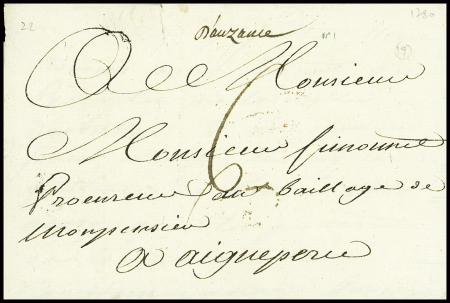 22
D'auzance
n° 1
1780
(9)
A Monsieur
6
Monsieur Simonnet
Procureur au bailliage de
Monpensier
a aigueperse